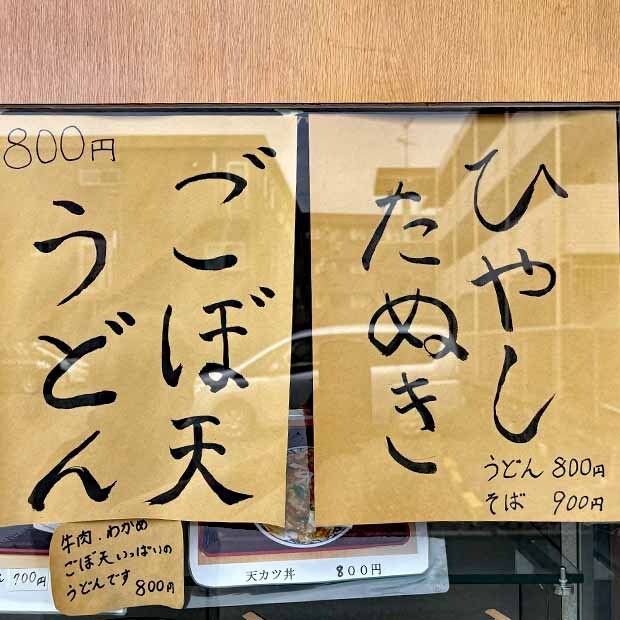 ひやし
たぬき
うどん 800円
そば 900円
800円
ごぼ天
うどん
牛肉.わかめ
ごぼ天いっぱいの
うどんです 800円
天カツ丼 800円
700円